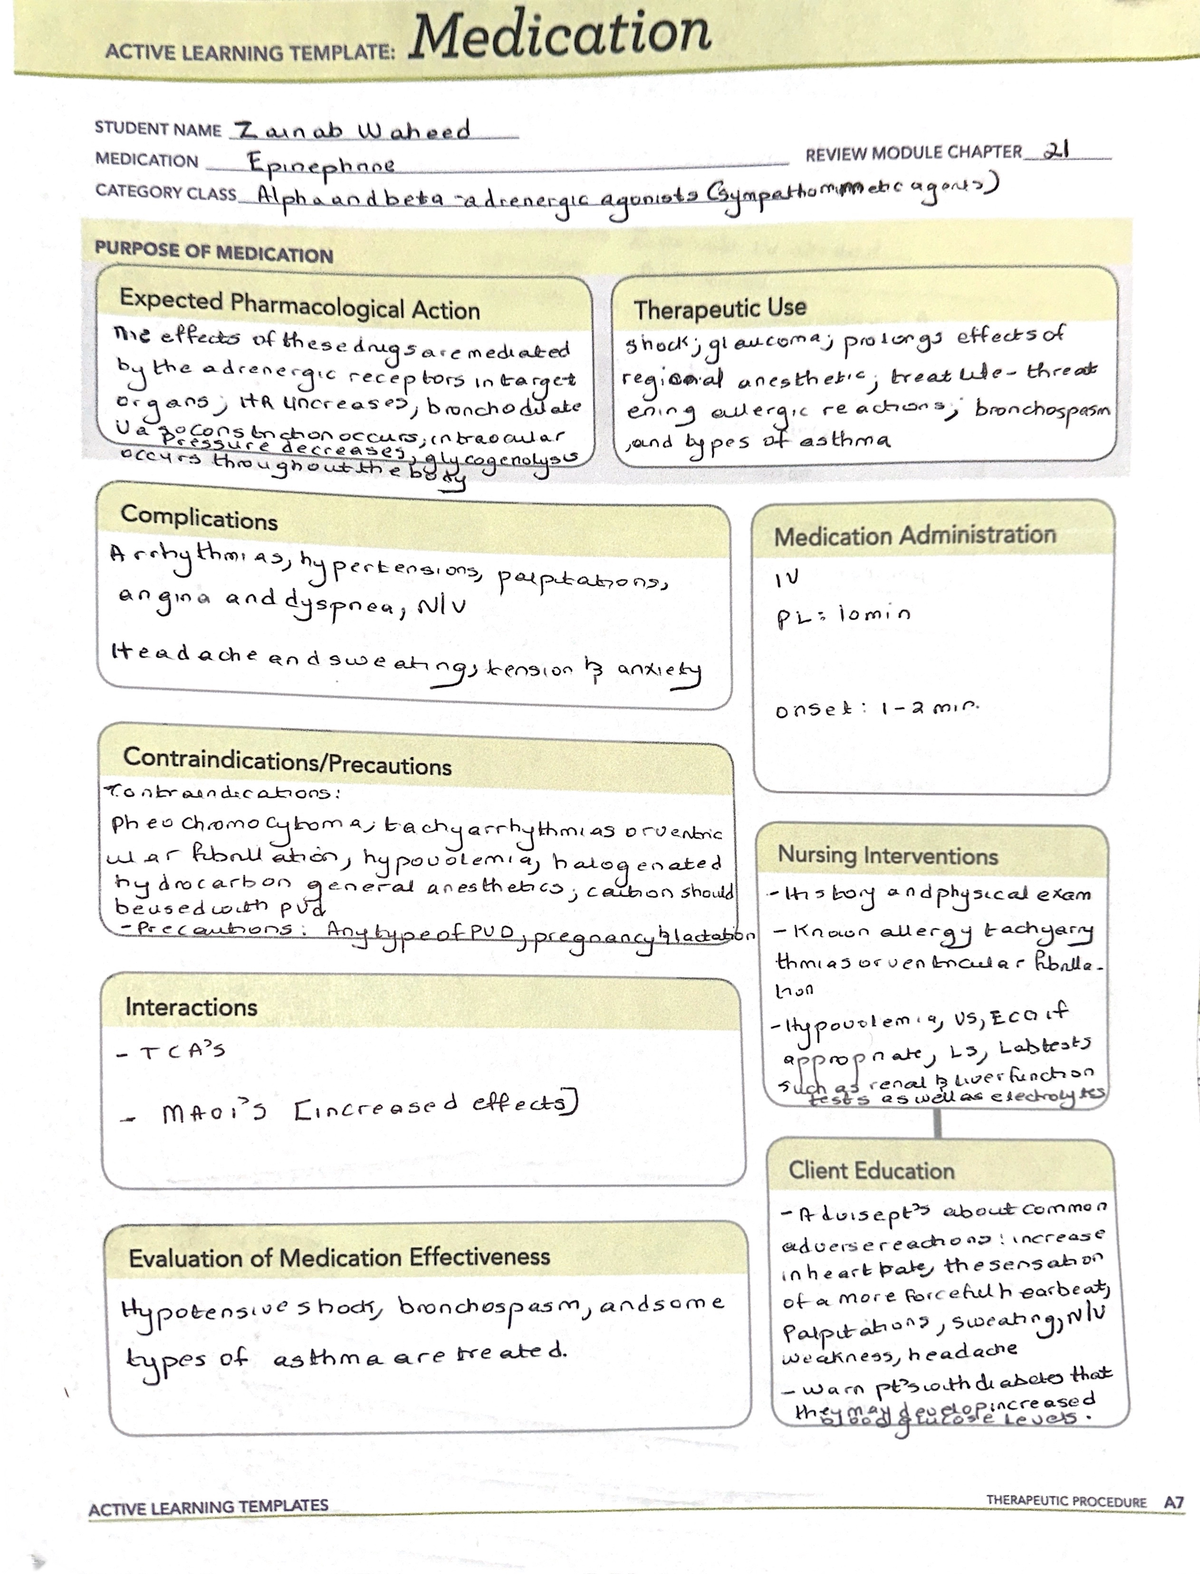 ACTIVE LEARNING TEMPLATE: Medication
STUDENT NAME Zainab Waheed
MEDICATION Epinephrine
REVIEW MODULE CHAPTER 21
CATEGORY CLASS Alpha and beta-adrenergic agonists (sympathomimetic agents)
PURPOSE OF MEDICATION
Expected Pharmacological Action
The effects of these drugs are mediated
by the adrenergic receptors in target
organs; HR increases, bronchodilate
Vasoconstriction occurs, intraocular
Pressure decreases, glycogenolysis
occurs throughout the body
Therapeutic Use
shock; glaucoma; prolongs effects of
regional anesthetic; treat life-threat
ening allergic reactions; bronchospasm
, and types of asthma
Complications
Arrhythmias, hypertensions, palpitations,
angina and dyspnea, N/V
Headache and sweating, tension & anxiety
Medication Administration
IV
PL: 10min
onset: 1-2 min.
Contraindications/Precautions
Contraindications:
Pheochromocytoma; tachyarrhythmias or ventric
ular fibrillation, hypovolemia, halogenated
hydrocarbon general anesthetics; caution should
be used with PVd
- Precautions: Any type of PVD, pregnancy & lactation
Nursing Interventions
- History and physical exam
- Known allergy tachyarry
thmias or ventricular fibrilla-
tion
- Hypovolemia, VS, ECG if
appropriate, LS, Lab tests
such as renal & liver function
tests as well as electrolytes
Interactions
- TCA's
- MAOI's [increased effects]
Client Education
- Advise pt's about common
adverse reactions: increase
in heart rate, the sensation
of a more forceful hearbeat,
Palpitations, sweating, N/V
weakness, headache
- warn pt's with diabetes that
they may develop increased
blood glucose levels.
Evaluation of Medication Effectiveness
Hypotensive shock, bronchospasm, and some
types of asthma are treated.
ACTIVE LEARNING TEMPLATES
THERAPEUTIC PROCEDURE A7